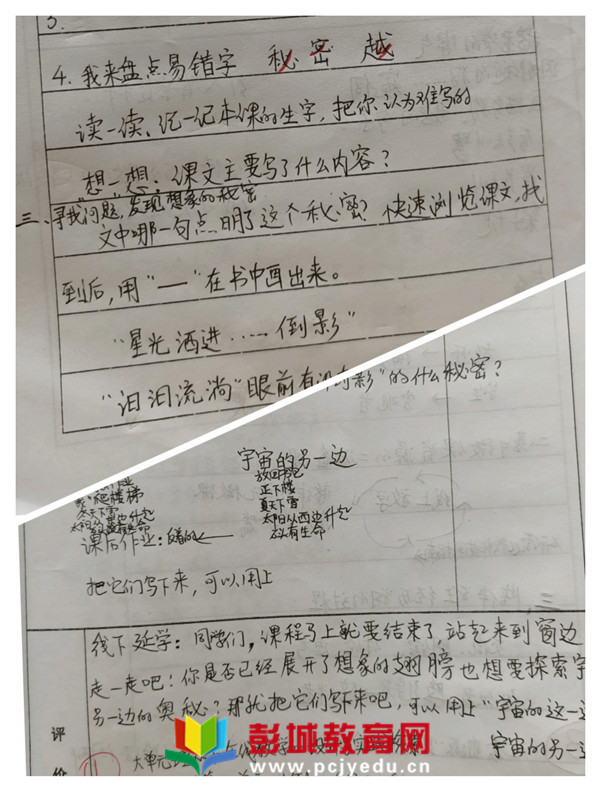 3.
4. 我来盘点易错字 秘 密 越
读一读、记一记本课的生字,把你认为难写的
想一想:课文主要写了什么内容?
三、寻找问题,发现想象的秘密
文中哪一句点明了这个秘密?快速浏览课文,找
到后,用“—”在书中画出来。
“星光洒进……倒影”
“汩汩流淌”眼前有 影”的什么秘密?
宇宙的另一边
爬楼梯
冬天下雪
正下楼
夏天下雪
太阳从西边升起
有生命
课后作业:
把它们写下来,可以用上
线下延学:同学们,课程马上就要结束了,站起来到窗边
走一走吧!你是否已经展开了想象的翅膀也想要探索宇
另一边的奥秘?那就把它们写下来吧,可以用上“宇宙的这一边
宇宙的另一边
评
价
大单元
彭城教育网
www.pcjyedu.cn